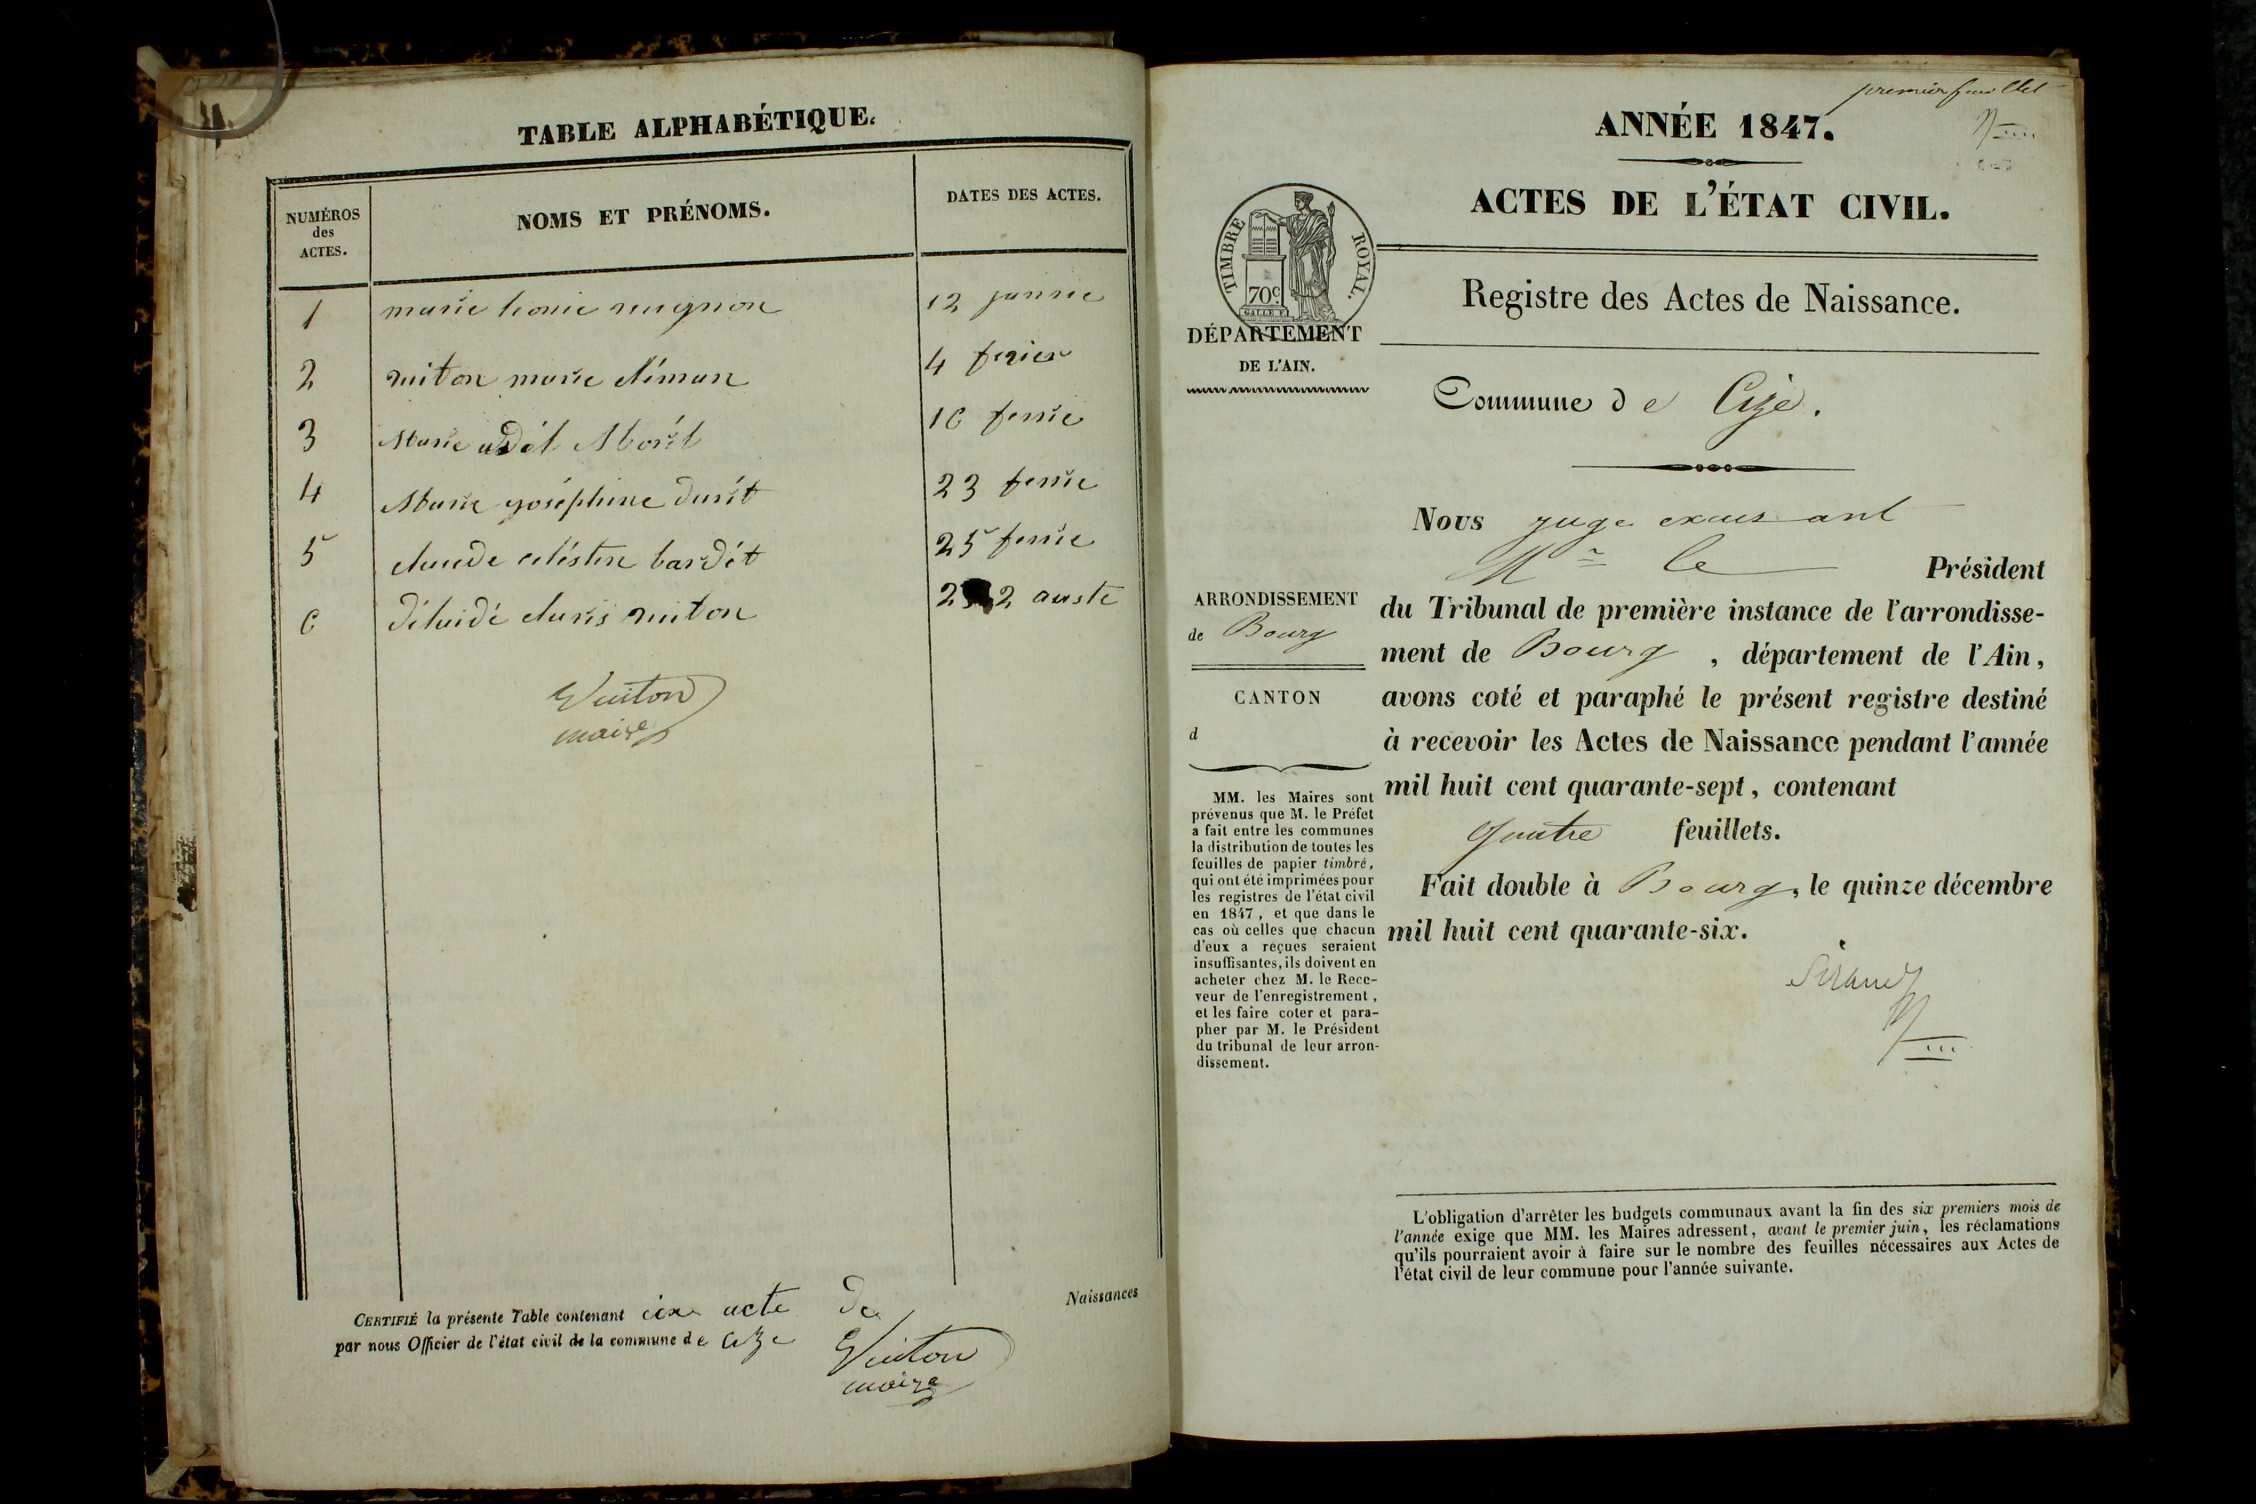 TABLE ALPHABÉTIQUE.
NUMÉROS
des
ACTES.
NOMS ET PRÉNOMS.
DATES DES ACTES.
1 marie leonie 12 janvie
2 marie 4 fevier
3 Marie Morél 16 fevrie
4 Marie joséphine durét 23 fevrie
5 claude celéstin bardét 25 fevrie
6 2 auste
Vuiton
maire
CERTIFIÉ la présente Table contenant six acte de Naissances
par nous Officier de l'état civil de la commune de Cize
Vuiton
maire
premier feuillet
ANNÉE 1847.
ACTES DE L'ÉTAT CIVIL.
TIMBRE ROYAL.
70c
DÉPARTEMENT
DE L'AIN.
Registre des Actes de Naissance.
Commune de Cize.
ARRONDISSEMENT
de Bourg
CANTON
d
MM. les Maires sont
prévenus que M. le Préfet
a fait entre les communes
la distribution de toutes les
feuilles de papier timbré,
qui ont été imprimées pour
les registres de l'état civil
en 1847, et que dans le
cas où celles que chacun
d'eux a reçues seraient
insuffisantes, ils doivent en
acheter chez M. le Rece-
veur de l'enregistrement,
et les faire coter et para-
pher par M. le Président
du tribunal de leur arron-
dissement.
Nous juge
Mr le Président
du Tribunal de première instance de l'arrondisse-
ment de Bourg, département de l'Ain,
avons coté et paraphé le présent registre destiné
à recevoir les Actes de Naissance pendant l'année
mil huit cent quarante-sept, contenant
quatre feuillets.
Fait double à Bourg, le quinze décembre
mil huit cent quarante-six.
L'obligation d'arrêter les budgets communaux avant la fin des six premiers mois de
l'année exige que MM. les Maires adressent, avant le premier juin, les réclamations
qu'ils pourraient avoir à faire sur le nombre des feuilles nécessaires aux Actes de
l'état civil de leur commune pour l'année suivante.